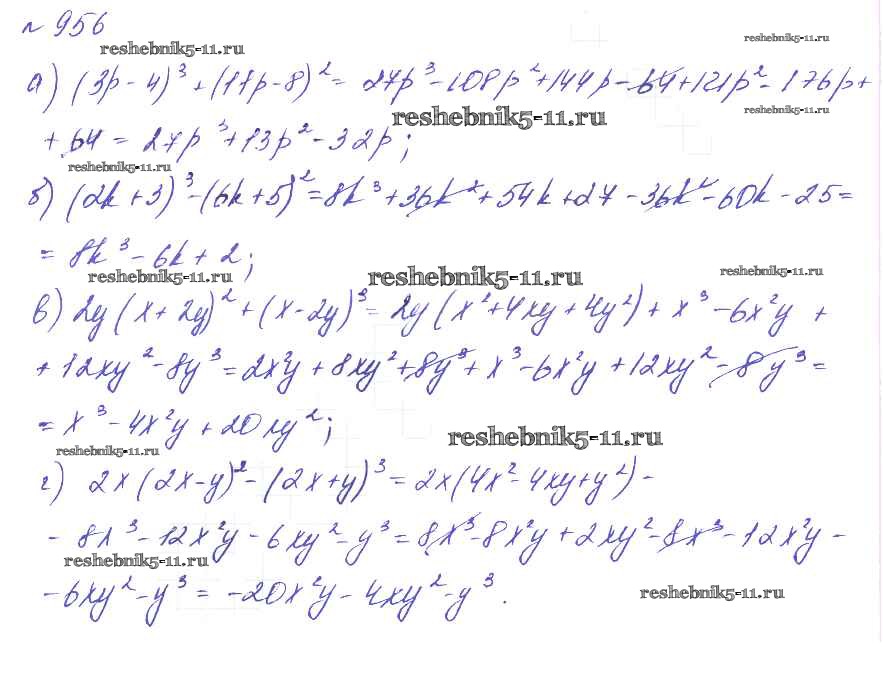 № 956
reshebnik5-11.ru
reshebnik5-11.ru
а) (3p - 4)³ + (11p - 8)² = 27p³ - 108p² + 144p - 64 + 121p² - 176p +
reshebnik5-11.ru
reshebnik5-11.ru
+ 64 = 27p³ + 13p² - 32p;
reshebnik5-11.ru
б) (2k + 3)³ - (6k + 5)² = 8k³ + 36k² + 54k + 27 - 36k² - 60k - 25 =
= 8k³ - 6k + 2;
reshebnik5-11.ru
reshebnik5-11.ru
reshebnik5-11.ru
в) 2y (x + 2y)² + (x - 2y)³ = 2y (x² + 4xy + 4y²) + x³ - 6x²y +
+ 12xy² - 8y³ = 2x²y + 8xy² + 8y³ + x³ - 6x²y + 12xy² - 8y³ =
= x³ - 4x²y + 20xy²;
reshebnik5-11.ru
reshebnik5-11.ru
г) 2x (2x - y)² - (2x + y)³ = 2x (4x² - 4xy + y²) -
- 8x³ - 12x²y - 6xy² - y³ = 8x³ - 8x²y + 2xy² - 8x³ - 12x²y -
reshebnik5-11.ru
- 6xy² - y³ = -20x²y - 4xy² - y³.
reshebnik5-11.ru